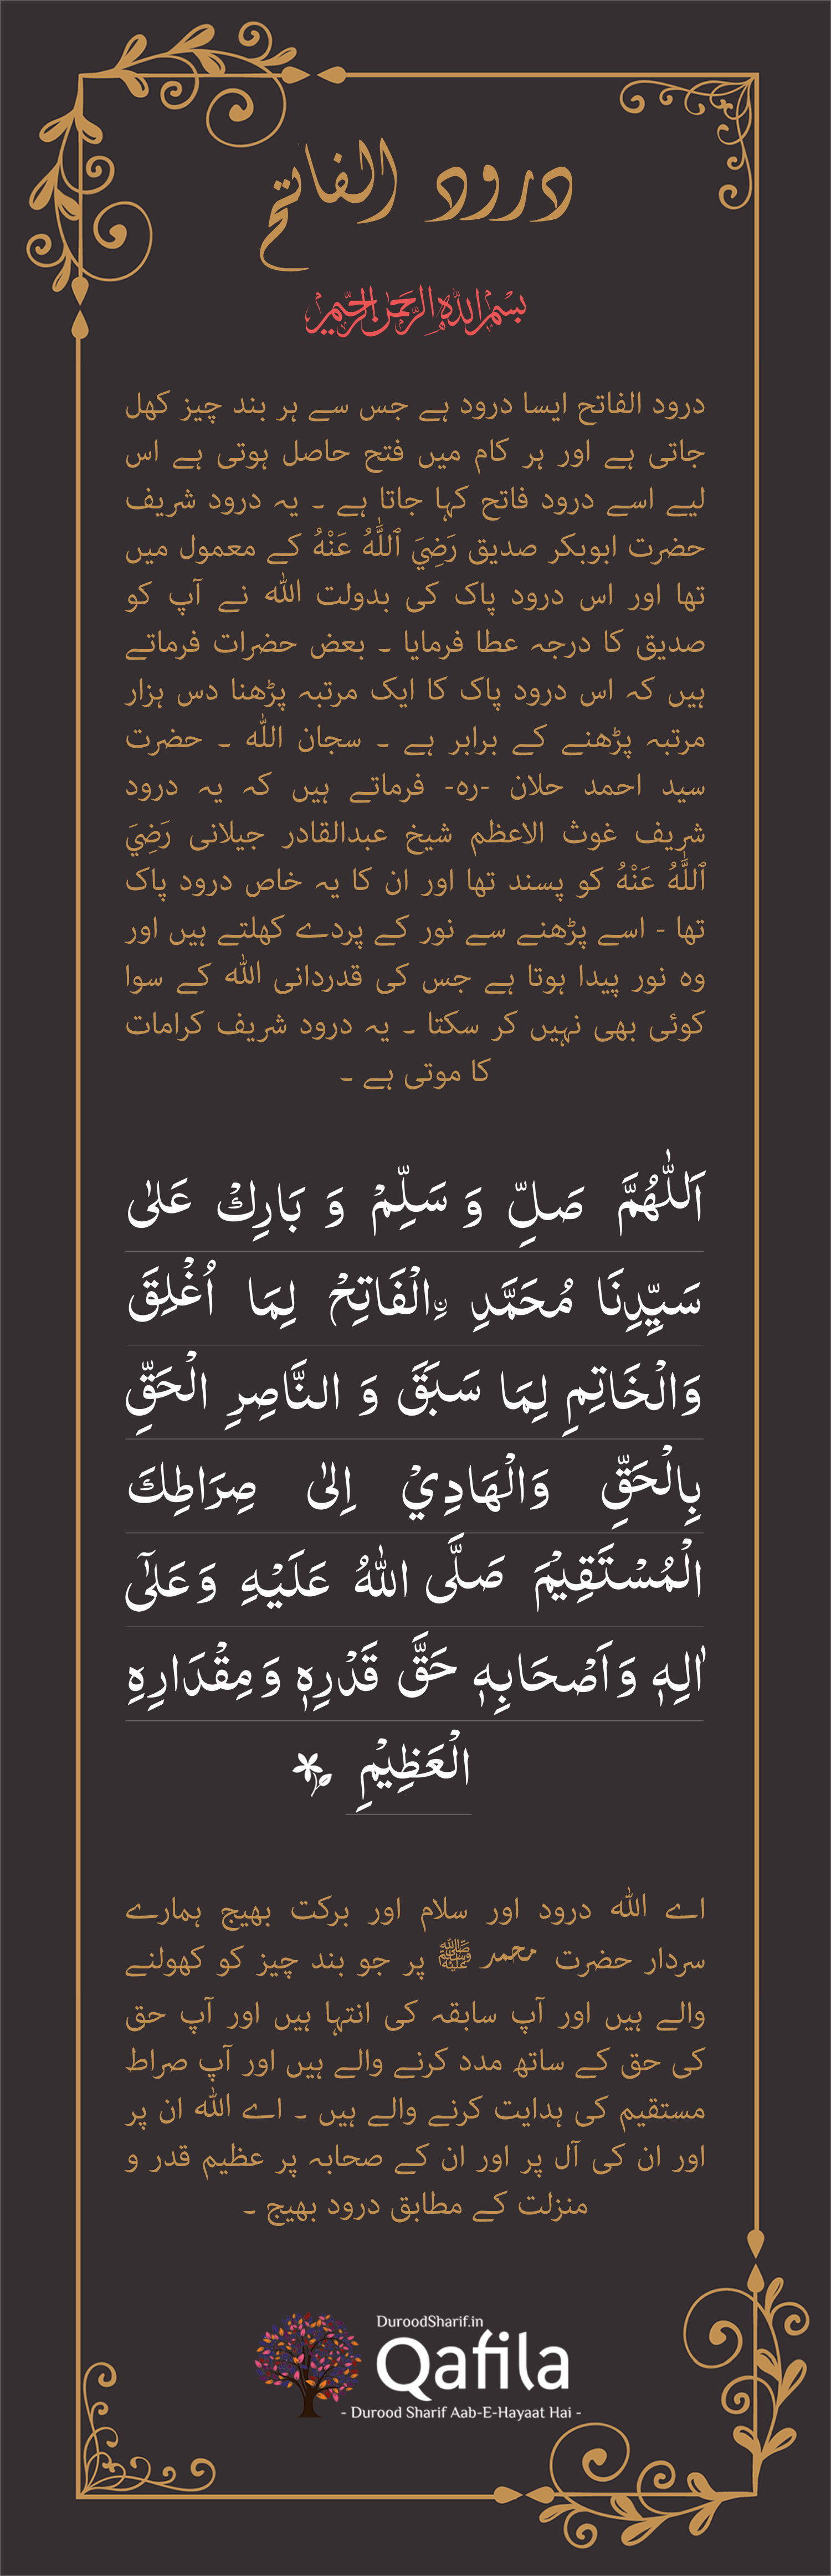 درود الفاتح
بسْمِ اللهِ الرَّحْمٰنِ الرَّحِيْمِ
درود الفاتح ایسا درود ہے جس سے ہر بند چیز کھل
جاتی ہے اور ہر کام میں فتح حاصل ہوتی ہے اس
لیے اسے درود فاتح کہا جاتا ہے ۔ یہ درود شریف
حضرت ابوبکر صدیق رَضِيَ ٱللَّٰهُ عَنْهُ کے معمول میں
تھا اور اس درود پاک کی بدولت الله نے آپ کو
صدیق کا درجہ عطا فرمایا ۔ بعض حضرات فرماتے
ہیں کہ اس درود پاک کا ایک مرتبہ پڑھنا دس ہزار
مرتبہ پڑھنے کے برابر ہے ۔ سجان الله ۔ حضرت
سید احمد حلان -رہ- فرماتے ہیں کہ یہ درود
شریف غوث الاعظم شیخ عبدالقادر جیلانی رَضِيَ
ٱللَّٰهُ عَنْهُ کو پسند تھا اور ان کا یہ خاص درود پاک
تھا - اسے پڑھنے سے نور کے پردے کھلتے ہیں اور
وہ نور پیدا ہوتا ہے جس کی قدردانی الله کے سوا
کوئی بھی نہیں کر سکتا ۔ یہ درود شریف کرامات
کا موتی ہے ۔
اَللّٰهُمَّ صَلِّ وَ سَلِّمْ وَ بَارِكْ عَلٰى
سَيِّدِنَا مُحَمَّدِ ࣙالْفَاتِحْ لِمَا اُغْلِقَ
وَالْخَاتِمِ لِمَا سَبَقَ وَ النَّاصِرِ الْحَقِّ
بِالْحَقِّ وَالْهَادِيْ اِلٰى صِرَاطِكَ
الْمُسْتَقِيْمَ صَلَّى اللهُ عَلَيْهِ وَعَلٰٓى
اٰلِهٖ وَاَصْحَابِهٖ حَقَّ قَدْرِهٖ وَمِقْدَارِهِ
الْعَظِيْمِ
اے الله درود اور سلام اور برکت بھیج ہمارے
سردار حضرت محمد ﷺ پر جو بند چیز کو کھولنے
والے ہیں اور آپ سابقہ کی انتہا ہیں اور آپ حق
کی حق کے ساتھ مدد کرنے والے ہیں اور آپ صراط
مستقیم کی ہدایت کرنے والے ہیں ۔ اے الله ان پر
اور ان کی آل پر اور ان کے صحابہ پر عظیم قدر و
منزلت کے مطابق درود بھیج ۔
DuroodSharif.in
Qafila
- Durood Sharif Aab-E-Hayaat Hai -